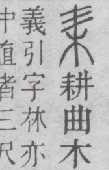 耒耕曲木
義引字林亦
中直者三尺